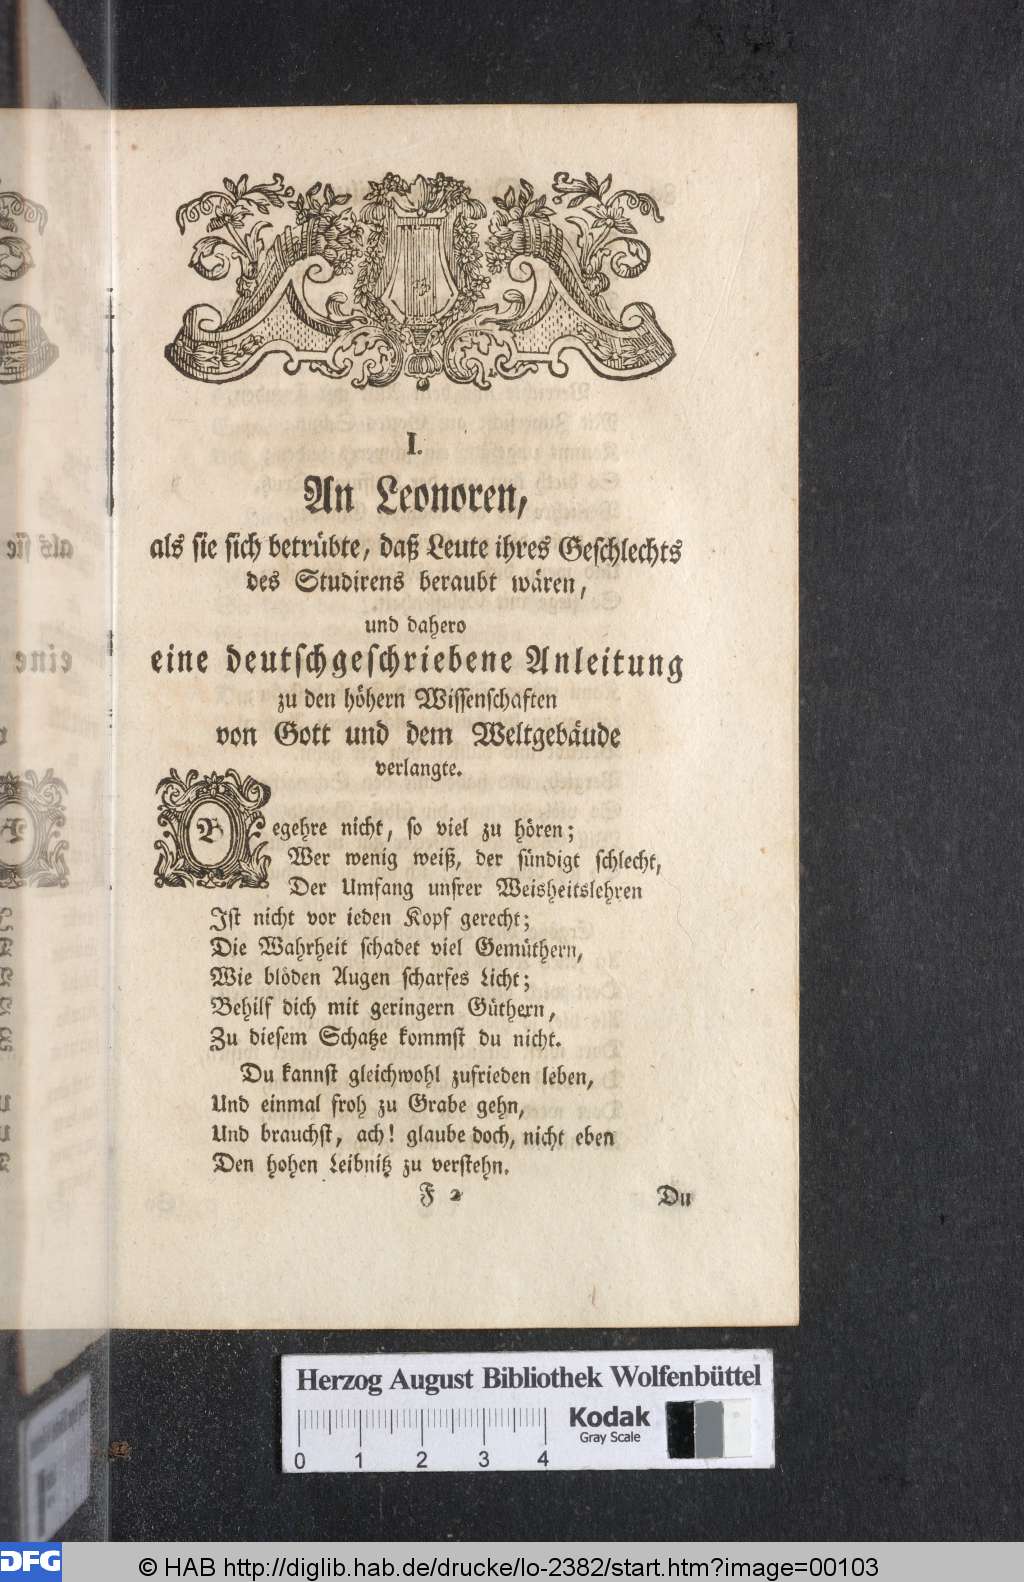 I.
An Leonoren,
als sie sich betrübte, daß Leute ihres Geschlechts
des Studirens beraubt wären,
und dahero
eine deutschgeschriebene Anleitung
zu den höhern Wissenschaften
von Gott und dem Weltgebäude
verlangte.
Begehre nicht, so viel zu hören;
Wer wenig weiß, der sündigt schlecht,
Der Umfang unsrer Weisheitslehren
Ist nicht vor ieden Kopf gerecht;
Die Wahrheit schadet viel Gemüthern,
Wie blöden Augen scharfes Licht;
Behilf dich mit geringern Güthern,
Zu diesem Schatze kommst du nicht.
Du kannst gleichwohl zufrieden leben,
Und einmal froh zu Grabe gehn,
Und brauchst, ach! glaube doch, nicht eben
Den hohen Leibnitz zu verstehn.
F 2 Du
Herzog August Bibliothek Wolfenbüttel
0 1 2 3 4
Kodak
Gray Scale
DFG
© HAB http://diglib.hab.de/drucke/lo-2382/start.htm?image=00103